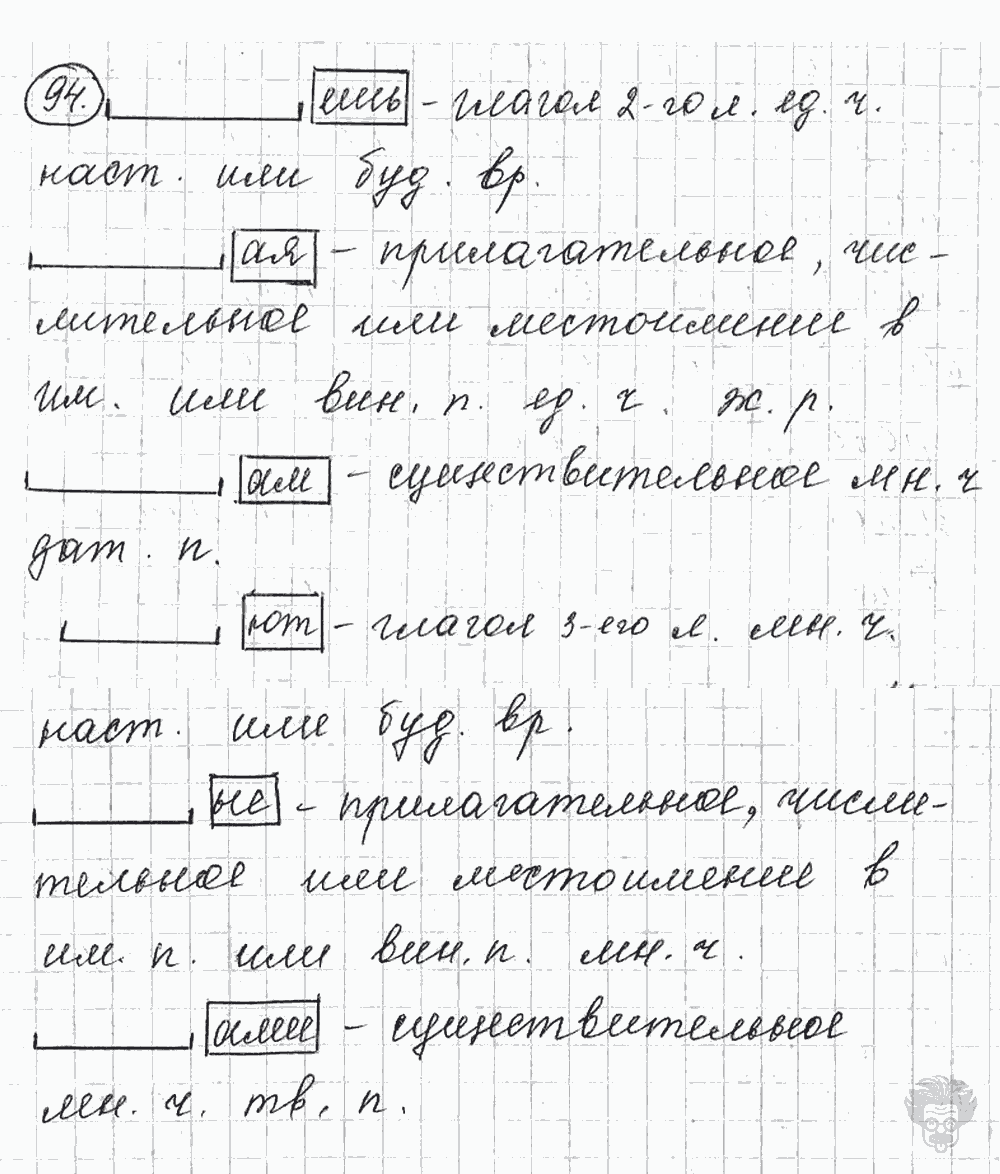 94. ешь - глагол 2-го л. ед. ч.
наст. или буд. вр.
ая - прилагательное, чис-
лительное или местоимение в
им. или вин. п. ед. ч. ж. р.
ам - существительное мн. ч
дат. п.
ют - глагол 3-его л. мн. ч.
наст. или буд. вр.
ые - прилагательное, числи-
тельное или местоимение в
им. п. или вин. п. мн. ч.
ами - существительное
мн. ч. тв. п.